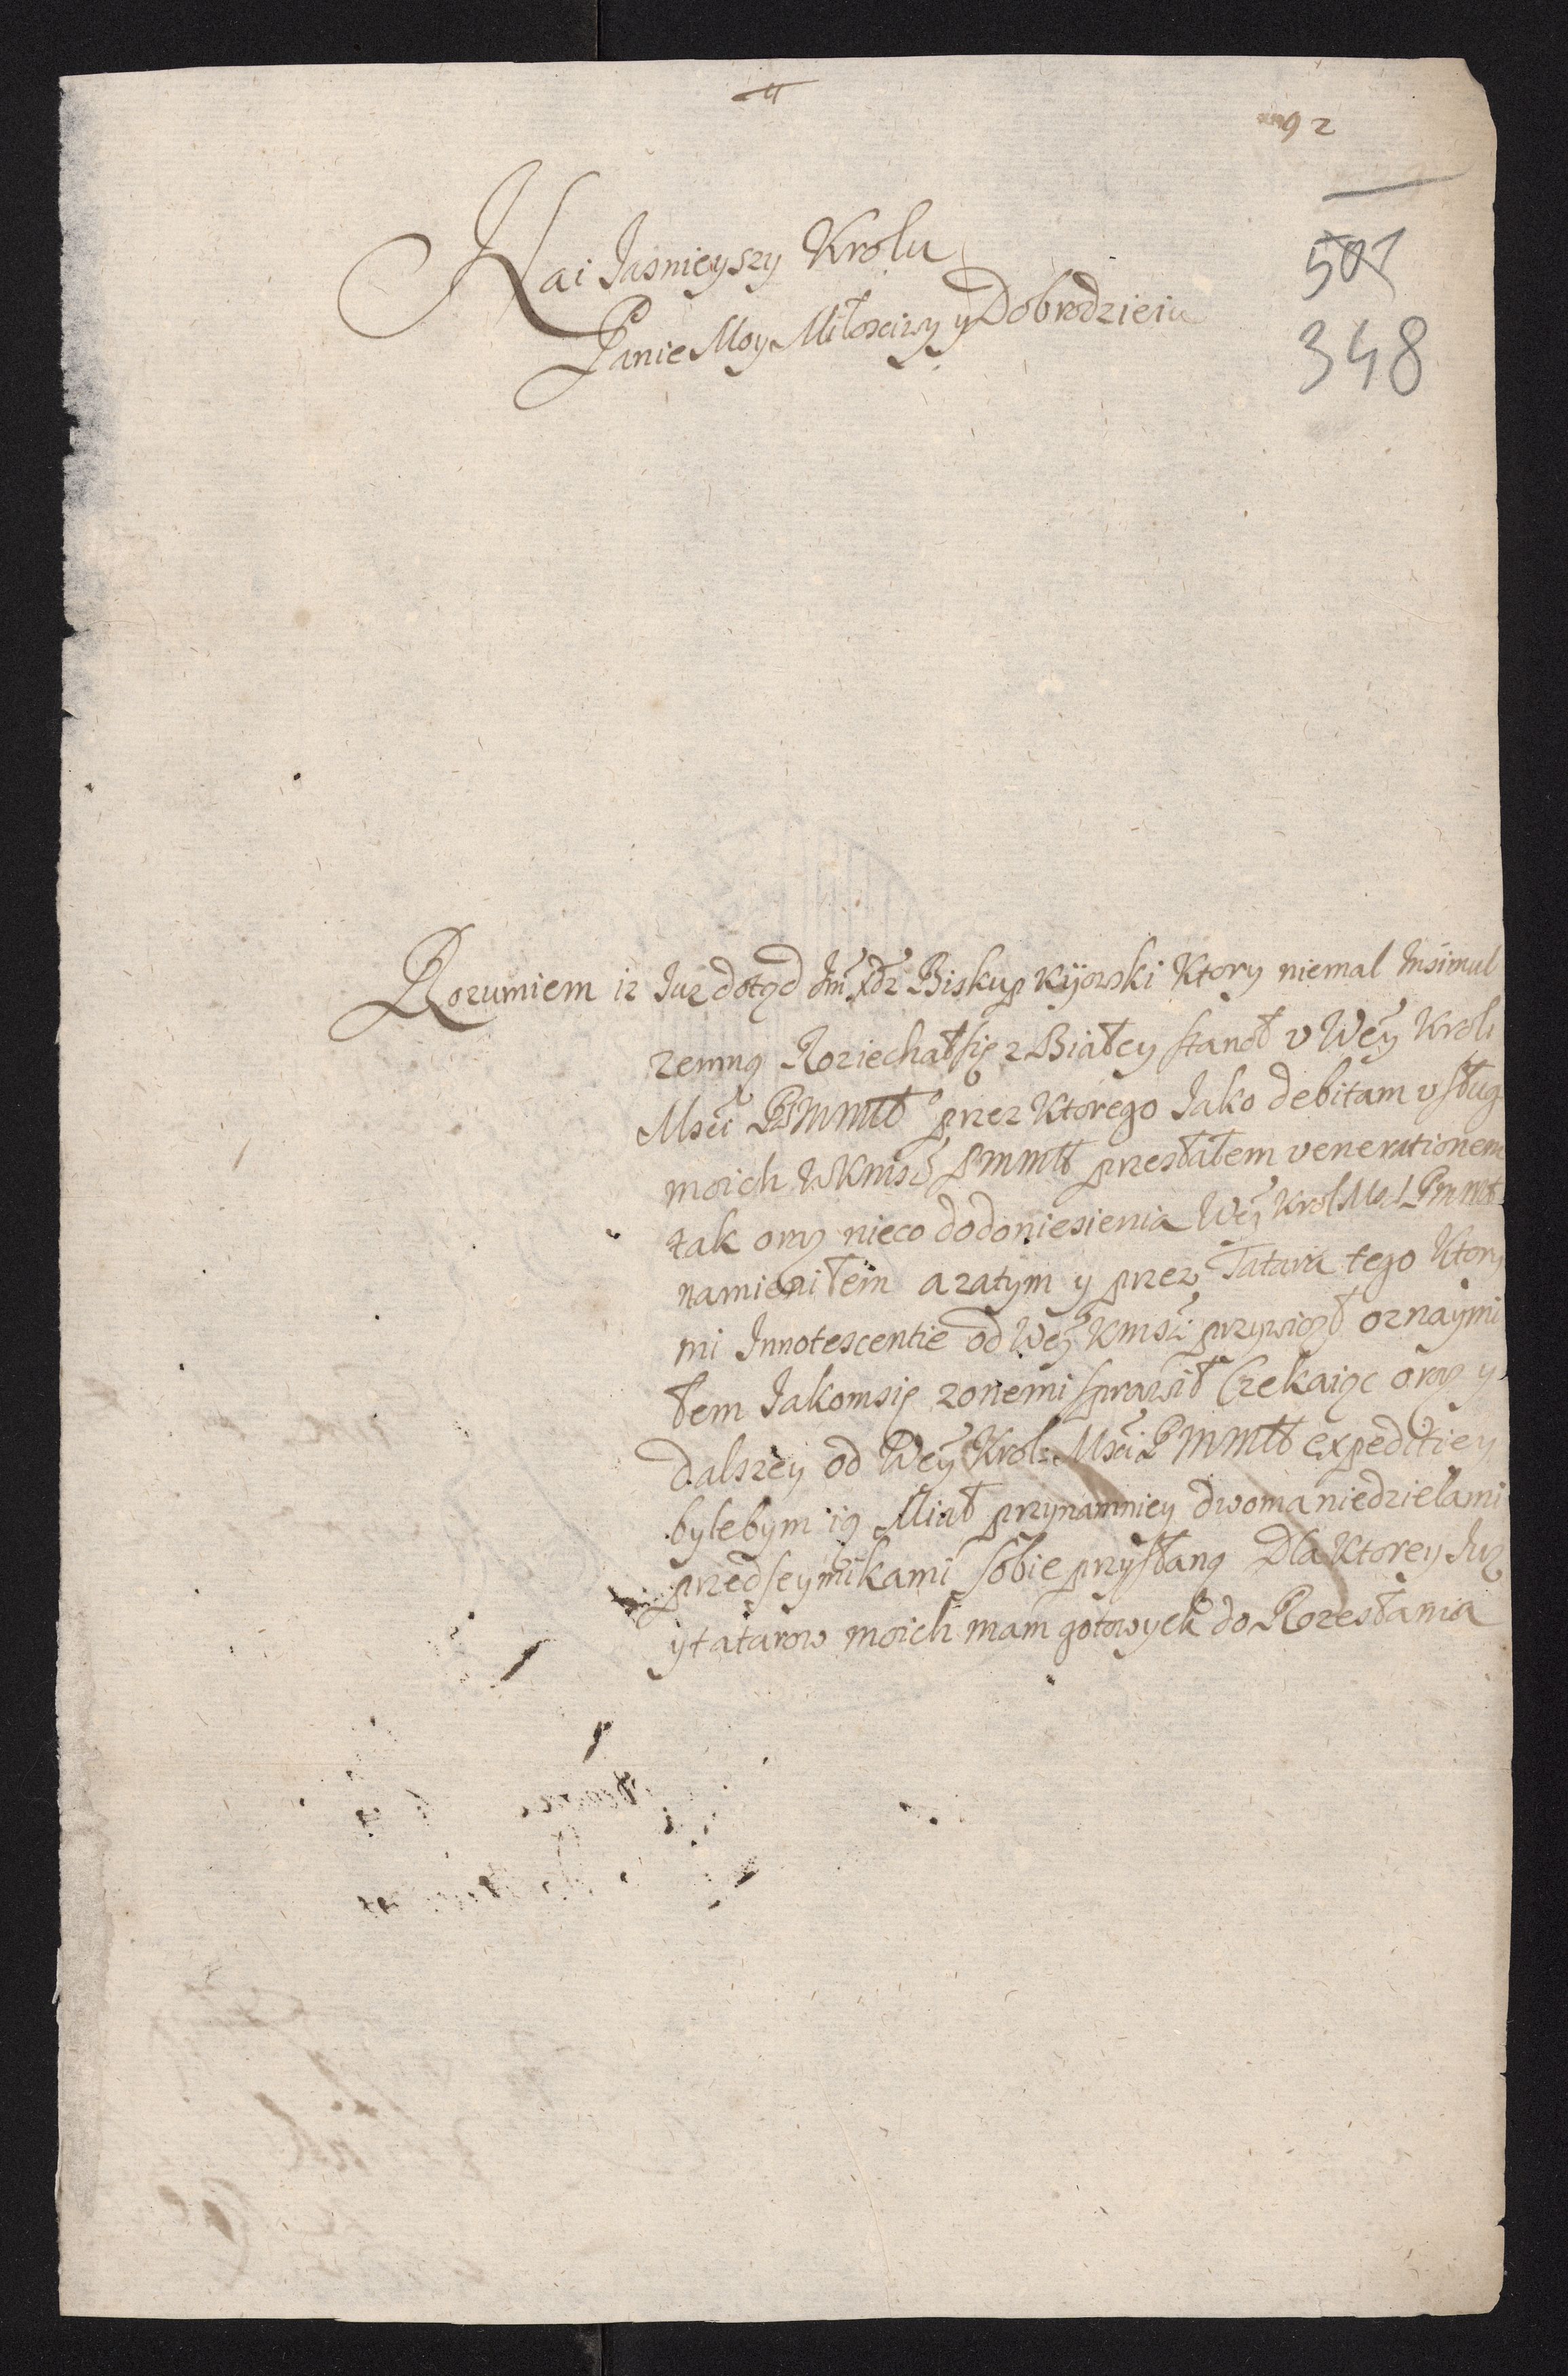 92
501
348
Nai Jasnieyszy Krolu
Panie Moy Miłosciwy y Dobrodzieiu
Rozumiem iz Juz dotąd Jm Xdz Biskup Kijowski Ktory niemal Insimul
zemną Roziechał się z Białey stanoł v Wey Krol
Msci PMMłł przez Ktorego Jako debitam vsług
moich WKmsci PMMłł przesłałem venerationem
tak oraz nieco do doniesienia Wey Krol Msci PMMłł
namieniłem a zatym y przez Tatara tego Ktory
mi Innotescentie od Wey Kmsci przywiozł oznaymi
łem Jakomsię zonemi sprawił Czekaiąc oraz y
dalszey od Wey Krol: Msci PMMłł expeditiey
bylebym ią Miał przynamniey dwoma niedzielami
przed seymikami sobie przysłaną Dla Ktorey Juz
y tatarow moich mam gotowych do Rozesłania